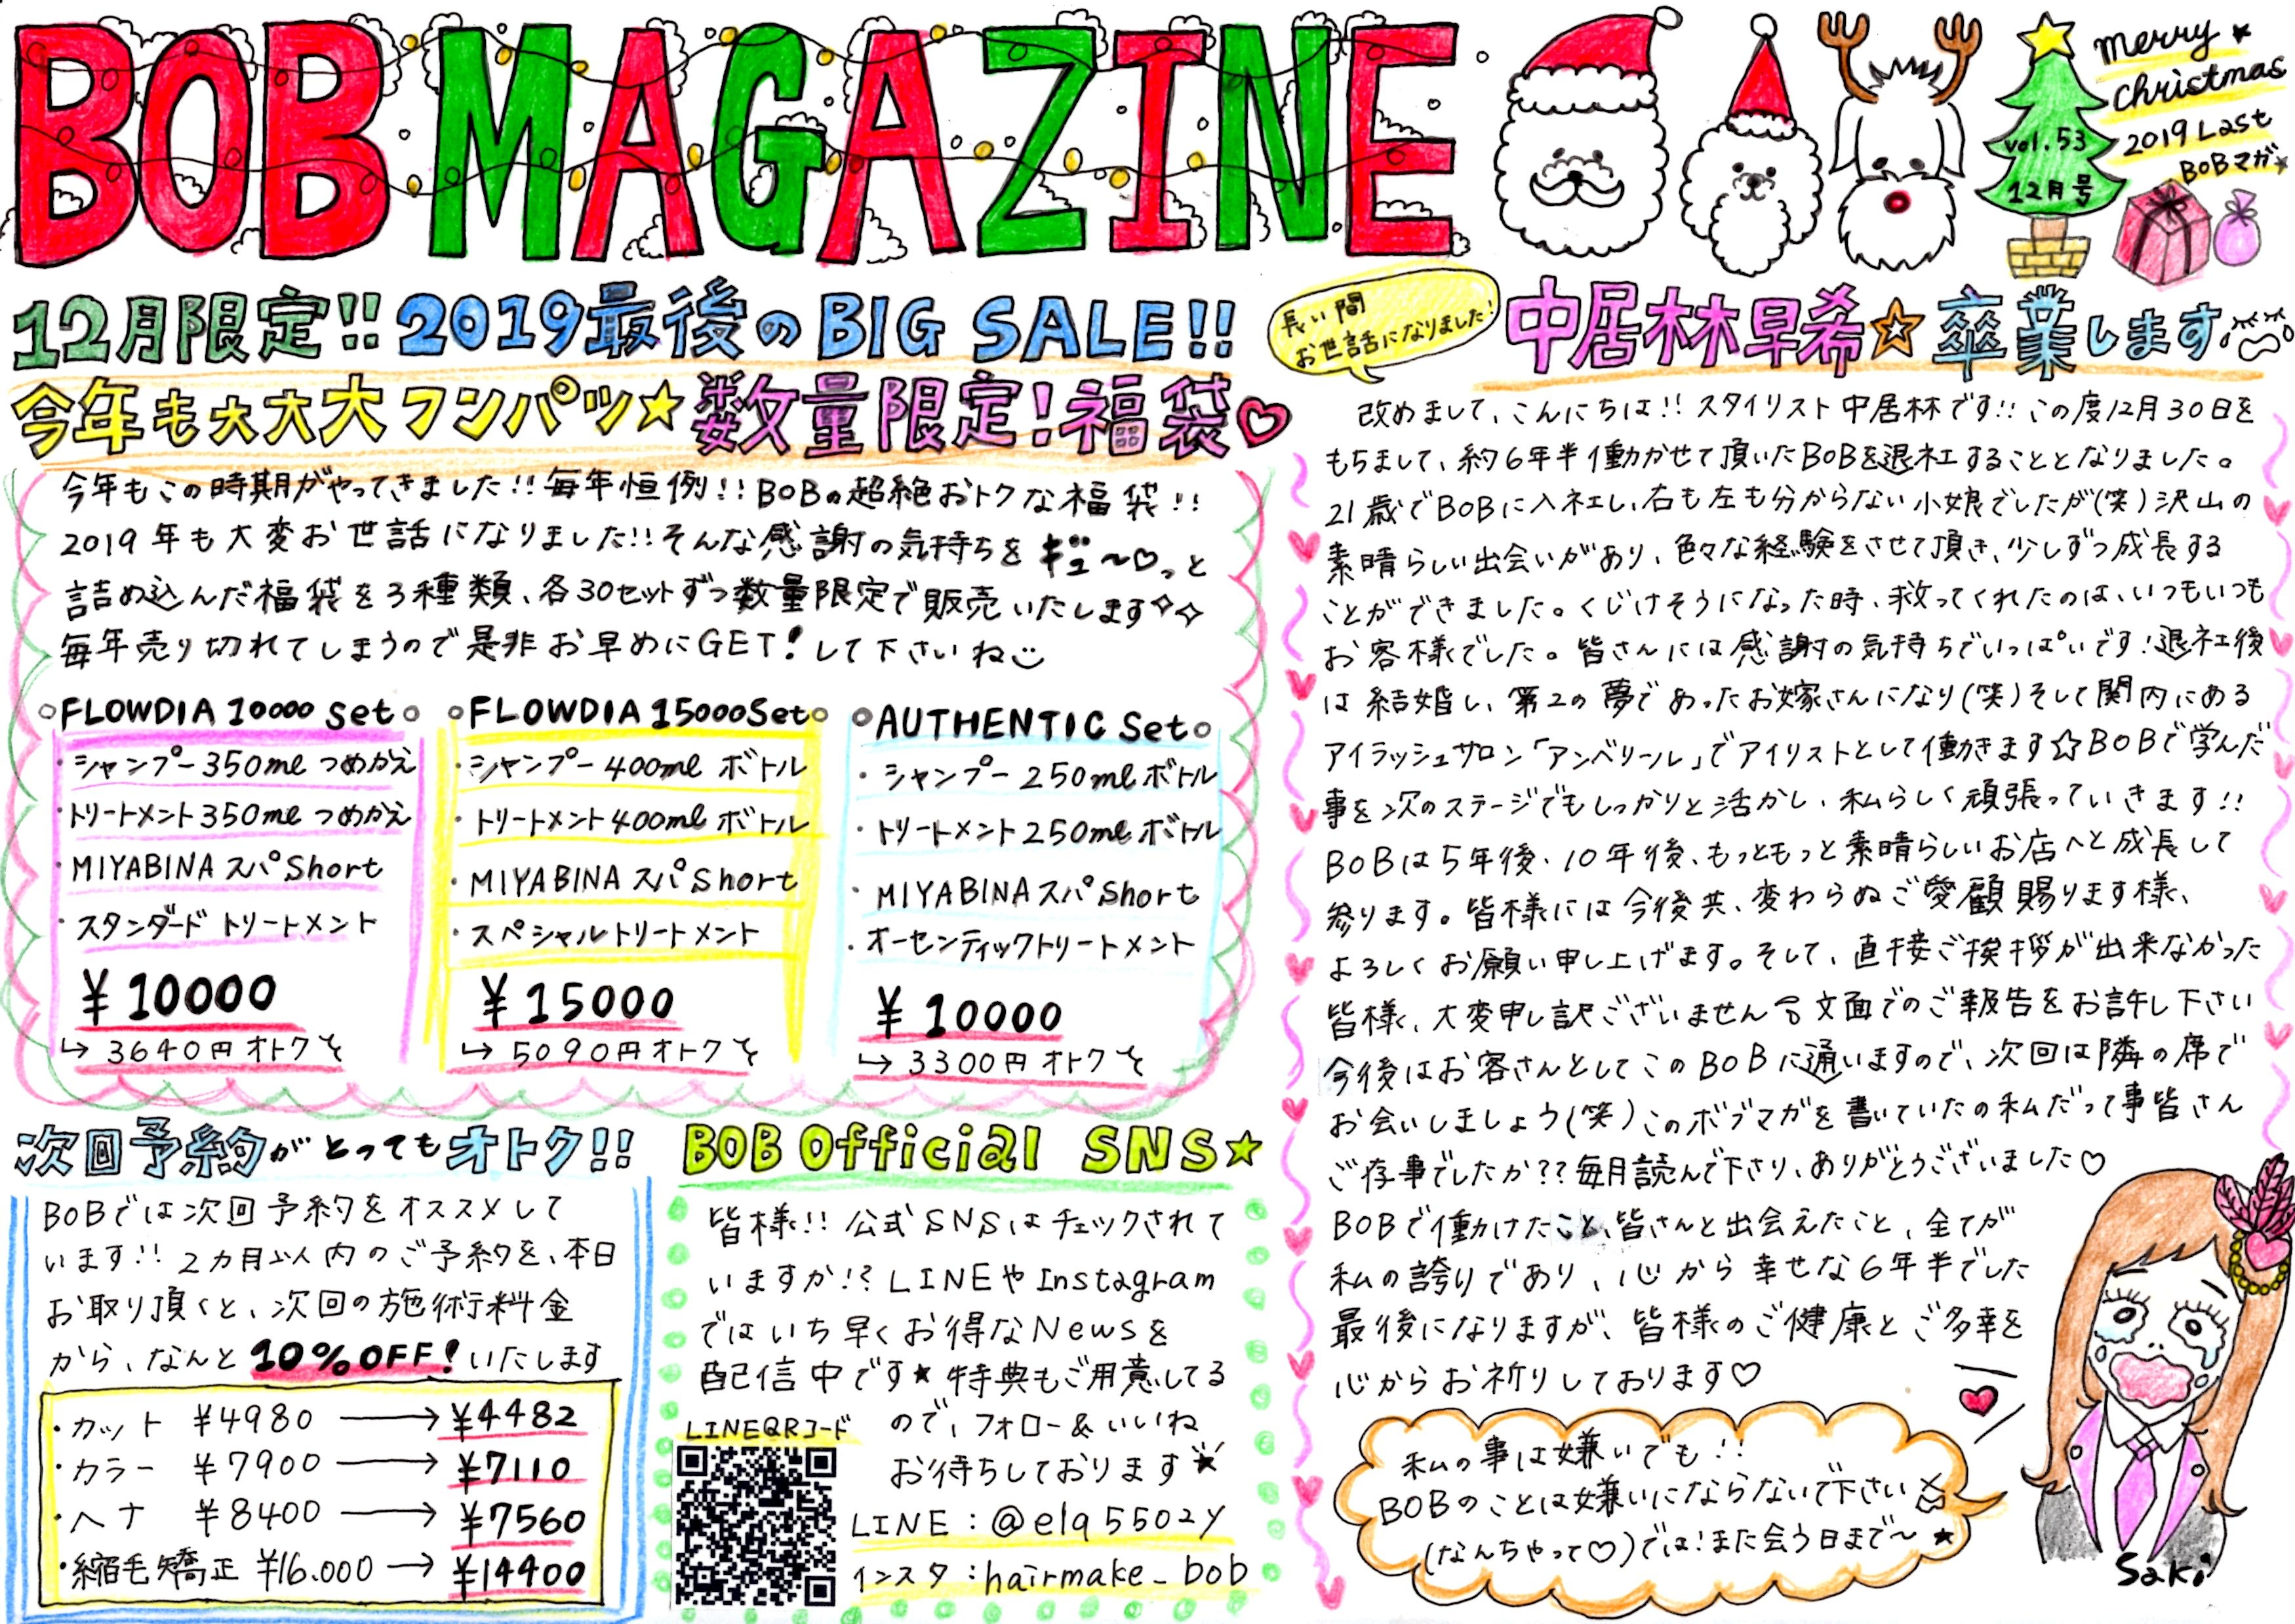 BOB MAGAZINE
merry
christmas
2019 Last
BOBマガ
vol.53
12月号
12月限定!! 2019最後のBIG SALE!!
今年も大大大フンパツ★数量限定!福袋♡
今年もこの時期がやってきました!!毎年恒例!!BOBの超絶おトクな福袋!!
2019年も大変お世話になりました!!そんな感謝の気持ちをギュ〜♡っと
詰め込んだ福袋を3種類、各30セットずつ数量限定で販売いたします✧✧
毎年売り切れてしまうので是非お早めにGET!して下さいね
FLOWDIA 10000 set
・シャンプー350ml つめかえ
・トリートメント350ml つめかえ
・MIYABINA スパ Short
・スタンダード トリートメント
¥10000
↳3640円オトク
FLOWDIA 15000Set
・シャンプー 400ml ボトル
・トリートメント 400ml ボトル
・MIYABINA スパ Short
・スペシャルトリートメント
¥15000
↳5090円オトク
AUTHENTIC Set
・シャンプー 250ml ボトル
・トリートメント 250ml ボトル
・MIYABINA スパ Short
・オーセンティックトリートメント
¥10000
↳3300円オトク
次回予約がとってもオトク!!
BOBでは次回予約をオススメして
います!!2カ月以内のご予約を、本日
お取り頂くと、次回の施術料金
から、なんと10%OFF!いたします
・カット ¥4980→¥4482
・カラー ¥7900→¥7110
・ヘナ ¥8400→¥7560
・縮毛矯正 ¥16.000→¥14400
BOB Official SNS★
皆様!!公式SNSはチェックされて
いますか!?LINEやInstagram
ではいち早くお得なNewsを
配信中です★特典もご用意してる
ので、フォロー&いいね
お待ちしております
LINEQRコード
LINE:@elq5502y
インスタ:hairmake_bob
長い間
お世話になりました!
中居林早希☆卒業します
改めまして、こんにちは!!スタイリスト中居林です!!この度12月30日を
もちまして、約6年半働かせて頂いたBOBを退社することとなりました。
21歳でBOBに入社し、右も左も分からない小娘でしたが(笑)沢山の
素晴らしい出会いがあり、色々な経験をさせて頂き、少しずつ成長する
ことができました。くじけそうになった時、救ってくれたのは、いつもいつも
お客様でした。皆さんには感謝の気持ちでいっぱいです!退社後
は結婚し、第2の夢であったお嫁さんになり(笑)そして関内にある
アイラッシュサロン「アンベリール」でアイリストとして働きます☆BOBで学んだ
事を次のステージでもしっかりと活かし、私らしく頑張っていきます!!
BOBは5年後、10年後、もっともっと素晴らしいお店へと成長して
参ります。皆様には今後共、変わらぬご愛顧賜ります様、
よろしくお願い申し上げます。そして、直接ご挨拶が出来なかった
皆様、大変申し訳ございません 文面でのご報告をお許し下さい
今後はお客さんとしてこのBOBに通いますので、次回は隣の席で
お会いしましょう(笑)このボブマガを書いていたの私だって事皆さん
ご存事でしたか??毎月読んで下さり、ありがとうございました♡
BOBで働けたこと、皆さんと出会えたこと、全てが
私の誇りであり、心から幸せな6年半でした
最後になりますが、皆様のご健康とご多幸を
心からお祈りしております♡
私の事は嫌いでも!!
BOBのことは嫌いにならないで下さい
(なんちゃって♡)では!また会う日まで〜★
Saki